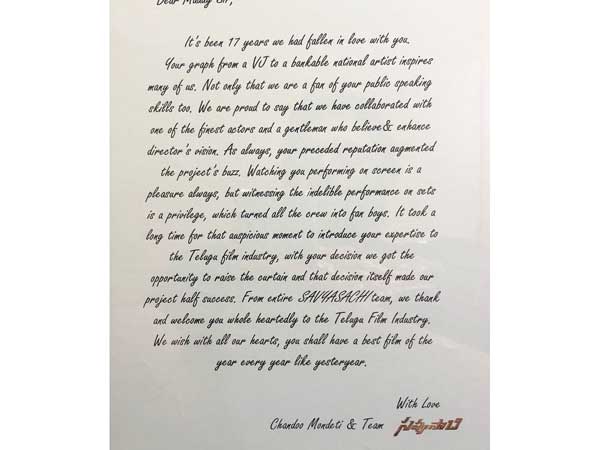 Dear Maddy Sir,
It's been 17 years we had fallen in love with you.
Your graph from a VJ to a bankable national artist inspires
many of us. Not only that we are a fan of your public speaking
skills too. We are proud to say that we have collaborated with
one of the finest actors and a gentleman who believe& enhance
director's vision. As always, your preceded reputation augmented
the project's buzz. Watching you performing on screen is a
pleasure always, but witnessing the indelible performance on sets
is a privilege, which turned all the crew into fan boys. It took a
long time for that auspicious moment to introduce your expertise to
the Telugu film industry, with your decision we got the
opportunity to raise the curtain and that decision itself made our
project half success. From entire SAVYASACHI team, we thank
and welcome you whole heartedly to the Telugu Film Industry.
We wish with all our hearts, you shall have a best film of the
year every year like yesteryear.
With Love
Chandoo Mondeti & Team సవ్యసాచి